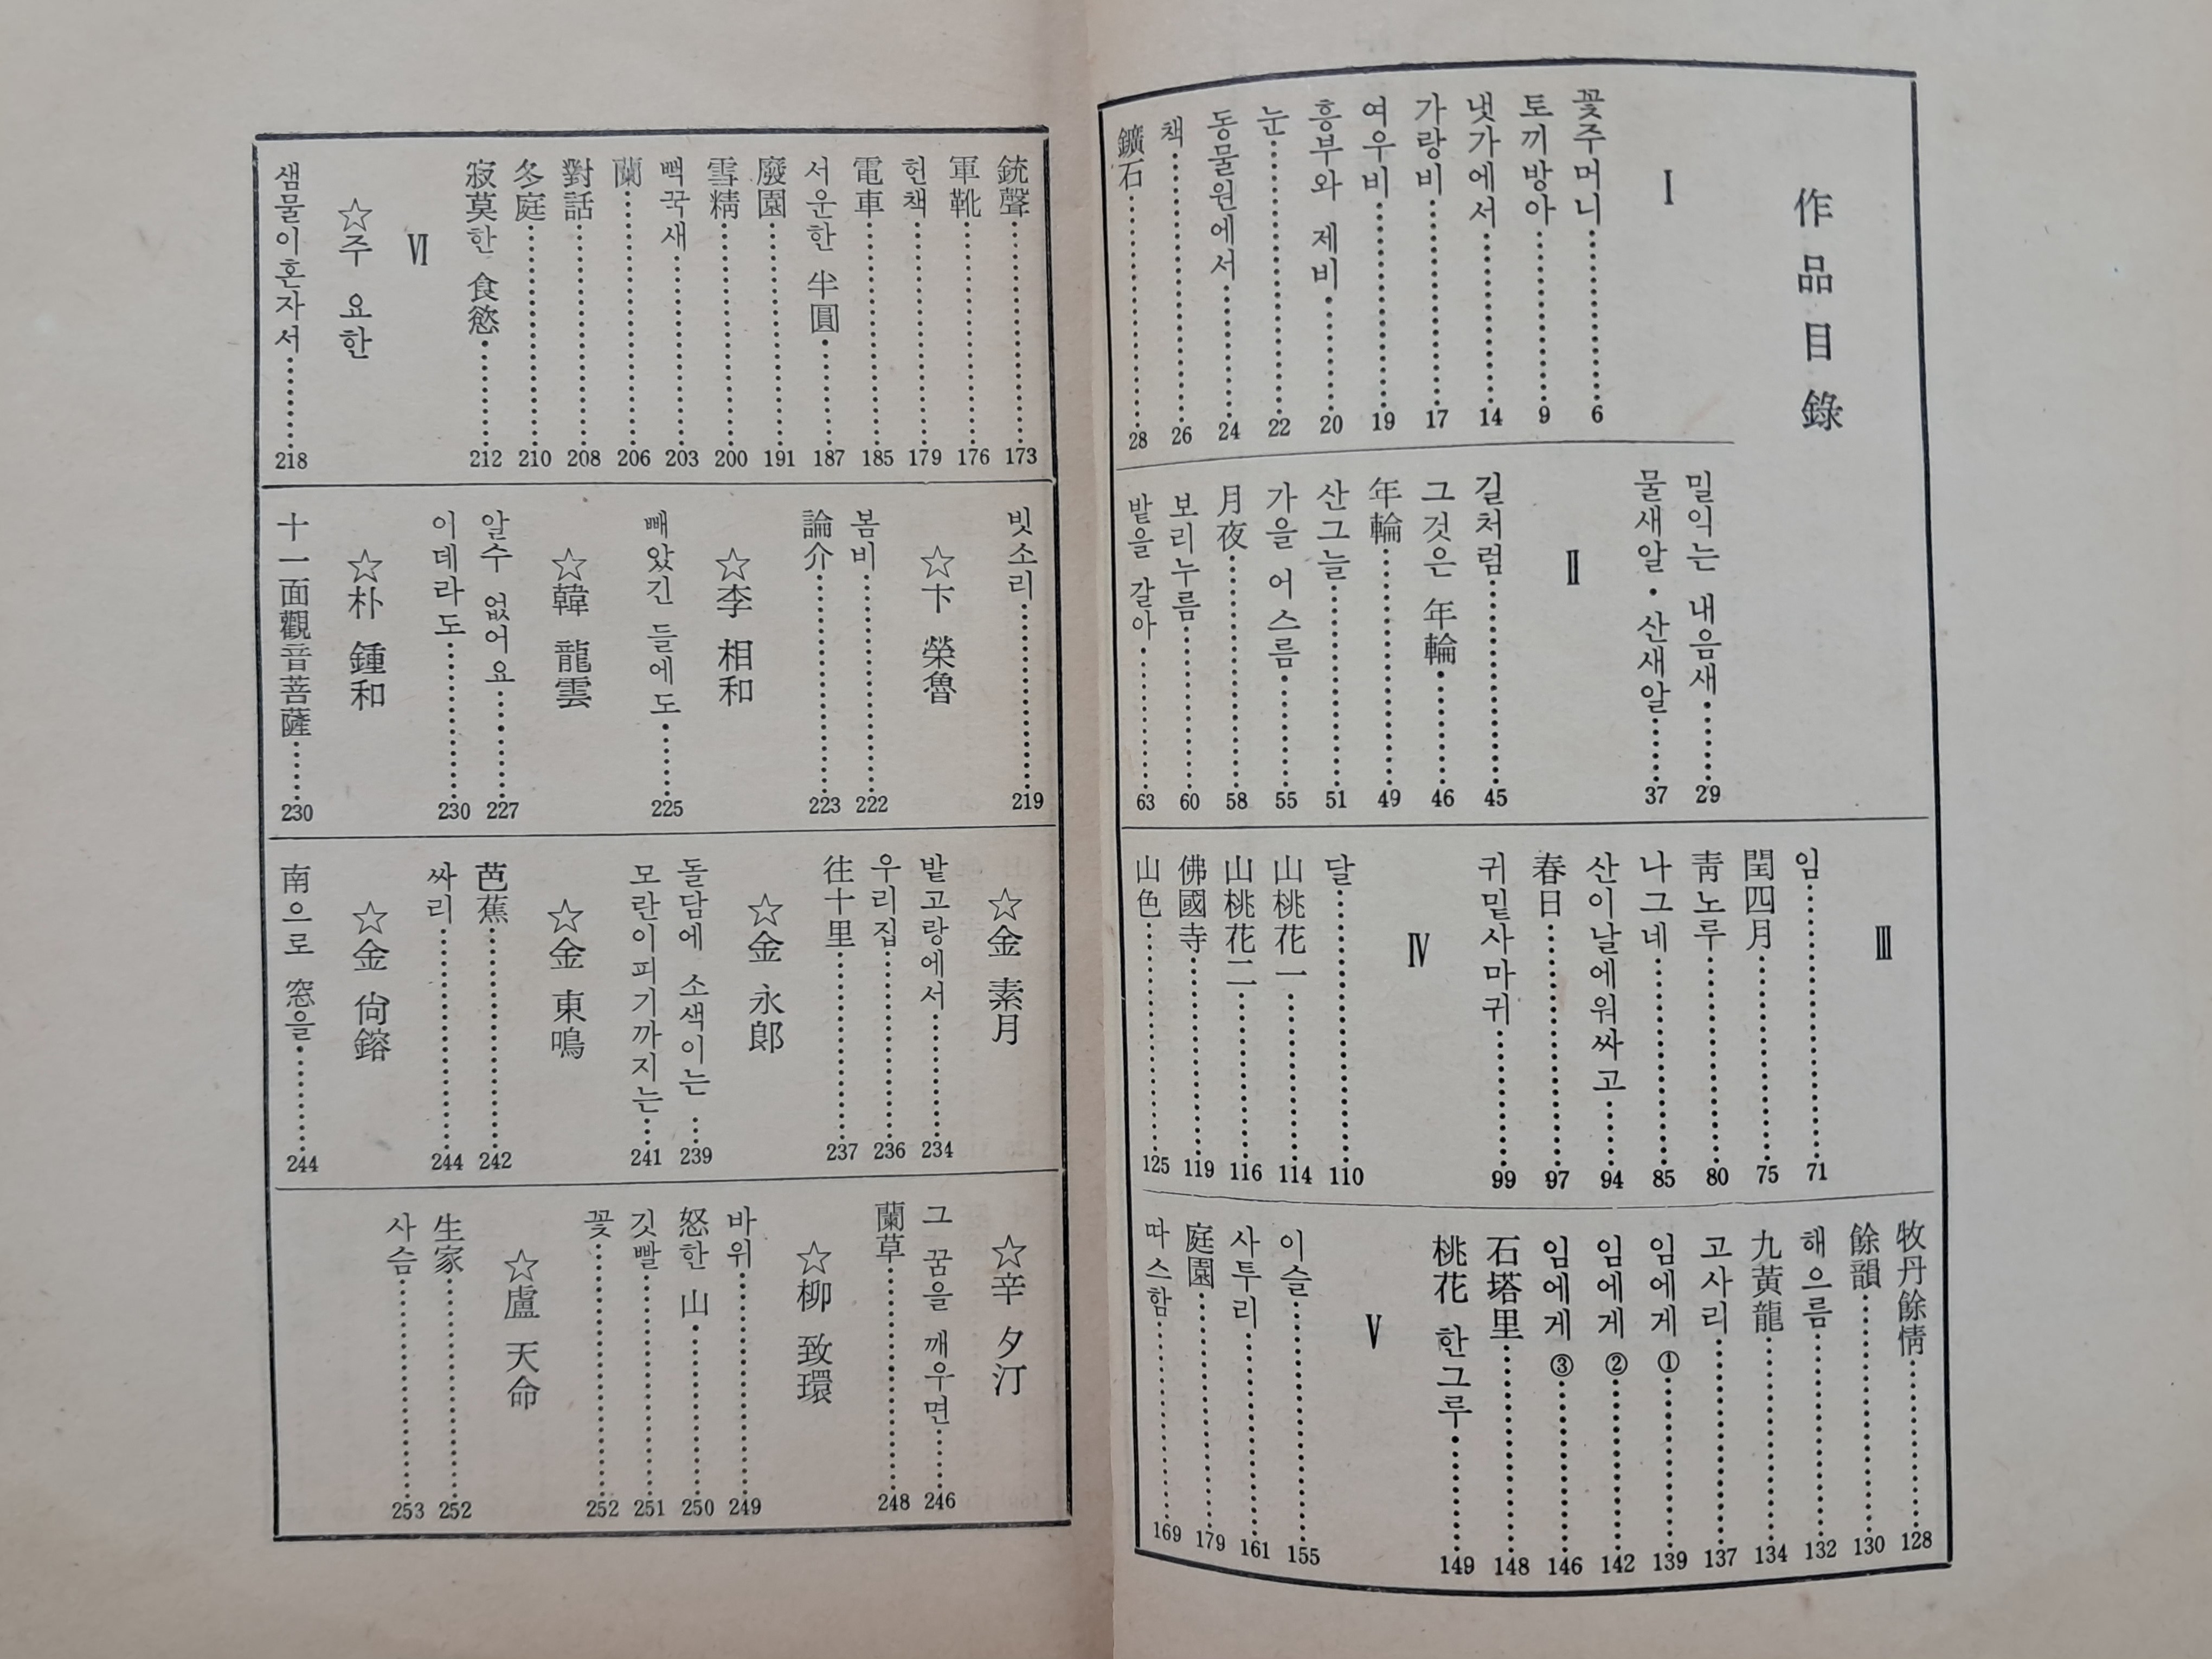 作品目錄
Ⅰ
꽃주머니 6
토끼방아 9
냇가에서 14
가랑비 17
여우비 19
흥부와 제비 20
눈 22
동물원에서 24
책 26
鑛石 28
밀익는 내음새 29
물새알·산새알 37
Ⅱ
길처럼 45
그것은 年輪 46
年輪 49
산그늘 51
가을 어스름 55
月夜 58
보리누름 60
밭을 갈아 63
Ⅲ
임 71
閏四月 75
靑노루 80
나그네 85
산이날에워싸고 94
春日 97
귀밑사마귀 99
Ⅳ
달 110
山桃花一 114
山桃花二 116
佛國寺 119
山色 125
牧丹餘情 128
餘韻 130
해으름 132
九黃龍 134
고사리 137
임에게 ① 139
임에게 ② 142
임에게 ③ 146
石塔里 148
桃花 한그루 149
Ⅴ
이슬 155
사투리 161
庭園 179
따스함 169
銃聲 173
軍靴 176
헌책 179
電車 185
서운한 半圓 187
廢園 191
雪精 200
뻑꾹새 203
蘭 206
對話 208
冬庭 210
寂莫한 食慾 212
Ⅵ
☆주 요한
샘물이혼자서 218
빗소리 219
☆卞 榮魯
봄비 222
論介 223
☆李 相和
빼았긴 들에도 225
☆韓 龍雲
알수 없어요 227
이데라도 230
☆朴 鍾和
十一面觀音菩薩 230
☆金 素月
밭고랑에서 234
우리집 236
往十里 237
☆金 永郞
돌담에 소색이는 239
모란이피기까지는 241
☆金 東鳴
芭蕉 242
싸리 244
☆金 尙鎔
南으로 窓을 244
☆辛 夕汀
그 꿈을 깨우면 246
蘭草 248
☆柳 致環
바위 249
怒한 山 250
깃빨 251
꽃 252
☆盧 天命
生家 252
사슴 253